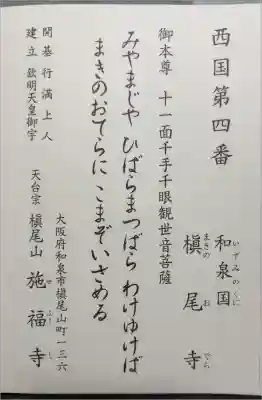 西国第四番
和泉国
いずみのくに
槇尾寺
まきのおでら
御本尊 十一面千手千眼観世音菩薩
みやまじや ひばらまつばら わけゆけば
まきのおてらに こまぞいさめる
大阪府和泉市槇尾山町一三六
天台宗 槇尾山 施福寺
せふくじ
開基 行満上人
建立 欽明天皇御宇